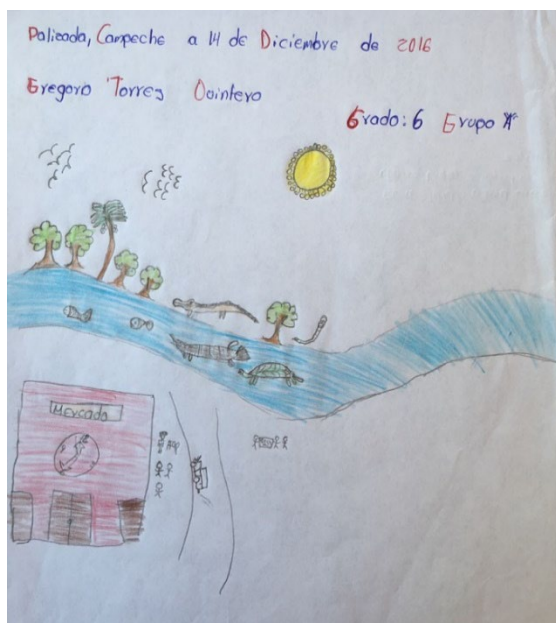 Palizada, Campeche a 14 de Diciembre de 2016
Gregoro Torres Quintero
Grado: 6 Grupo "A"
Mercado